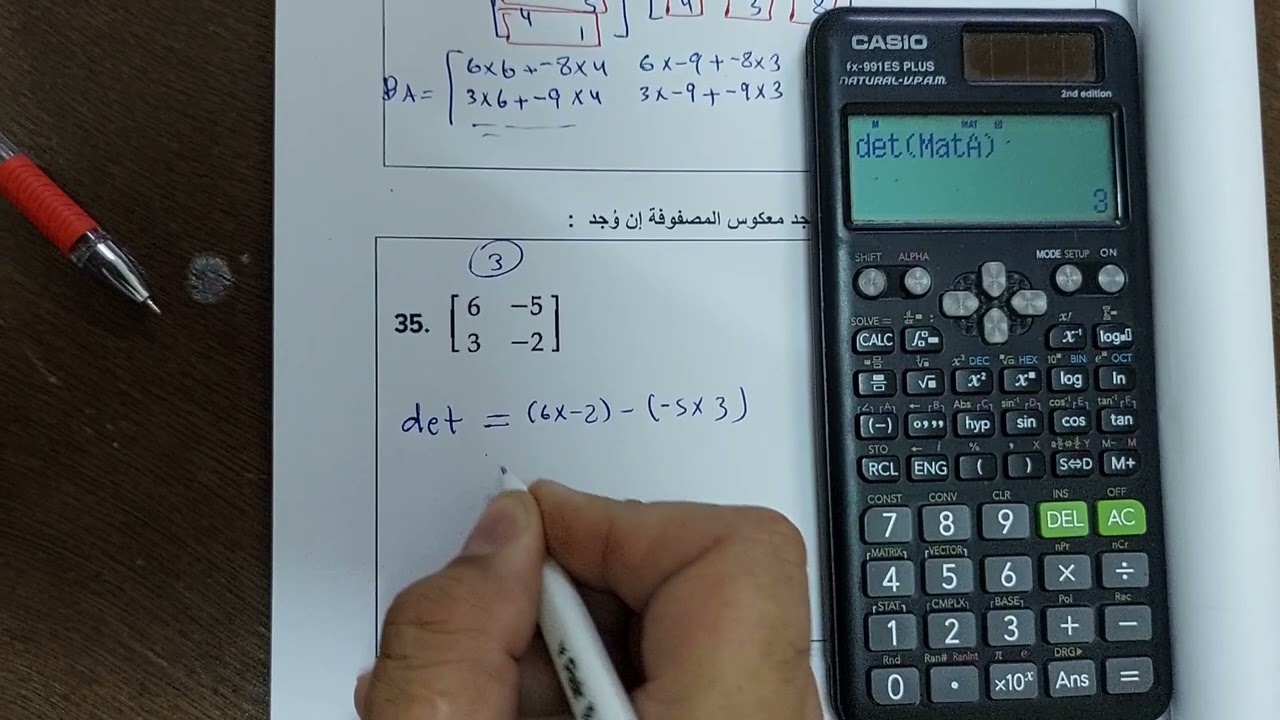 4 3 8
4 1
BA = [ 6x6 + -8x4 6x-9 + -8x3
3x6 + -9x4 3x-9 + -9x3
جد معكوس المصفوفة إن وُجد :
3
35. [ 6 -5 ]
[ 3 -2 ]
det = (6x-2) - (-5x3)
CASIO
fx-991ES PLUS
NATURAL-V.P.A.M.
2nd edition
M MAT
det(MatA)
3
SHIFT ALPHA MODE SETUP ON
SOLVE = x! 
CALC x⁻¹ log
x³ DEC HEX 10 BIN e OCT
√ x² x log ln
A B Abs C sin⁻¹ D cos⁻¹ E tan⁻¹ F
(−) hyp sin cos tan
STO ← i % , X Y M− M
RCL ENG ( ) S⇔D M+
CONST CONV CLR INS OFF
7 8 9 DEL AC
MATRIX VECTOR nPr nCr
4 5 6 × ÷
STAT CMPLX BASE Pol Rec
1 2 3 + −
Rnd Ran# RanInt π e DRG▶
0 . ×10ˣ Ans =